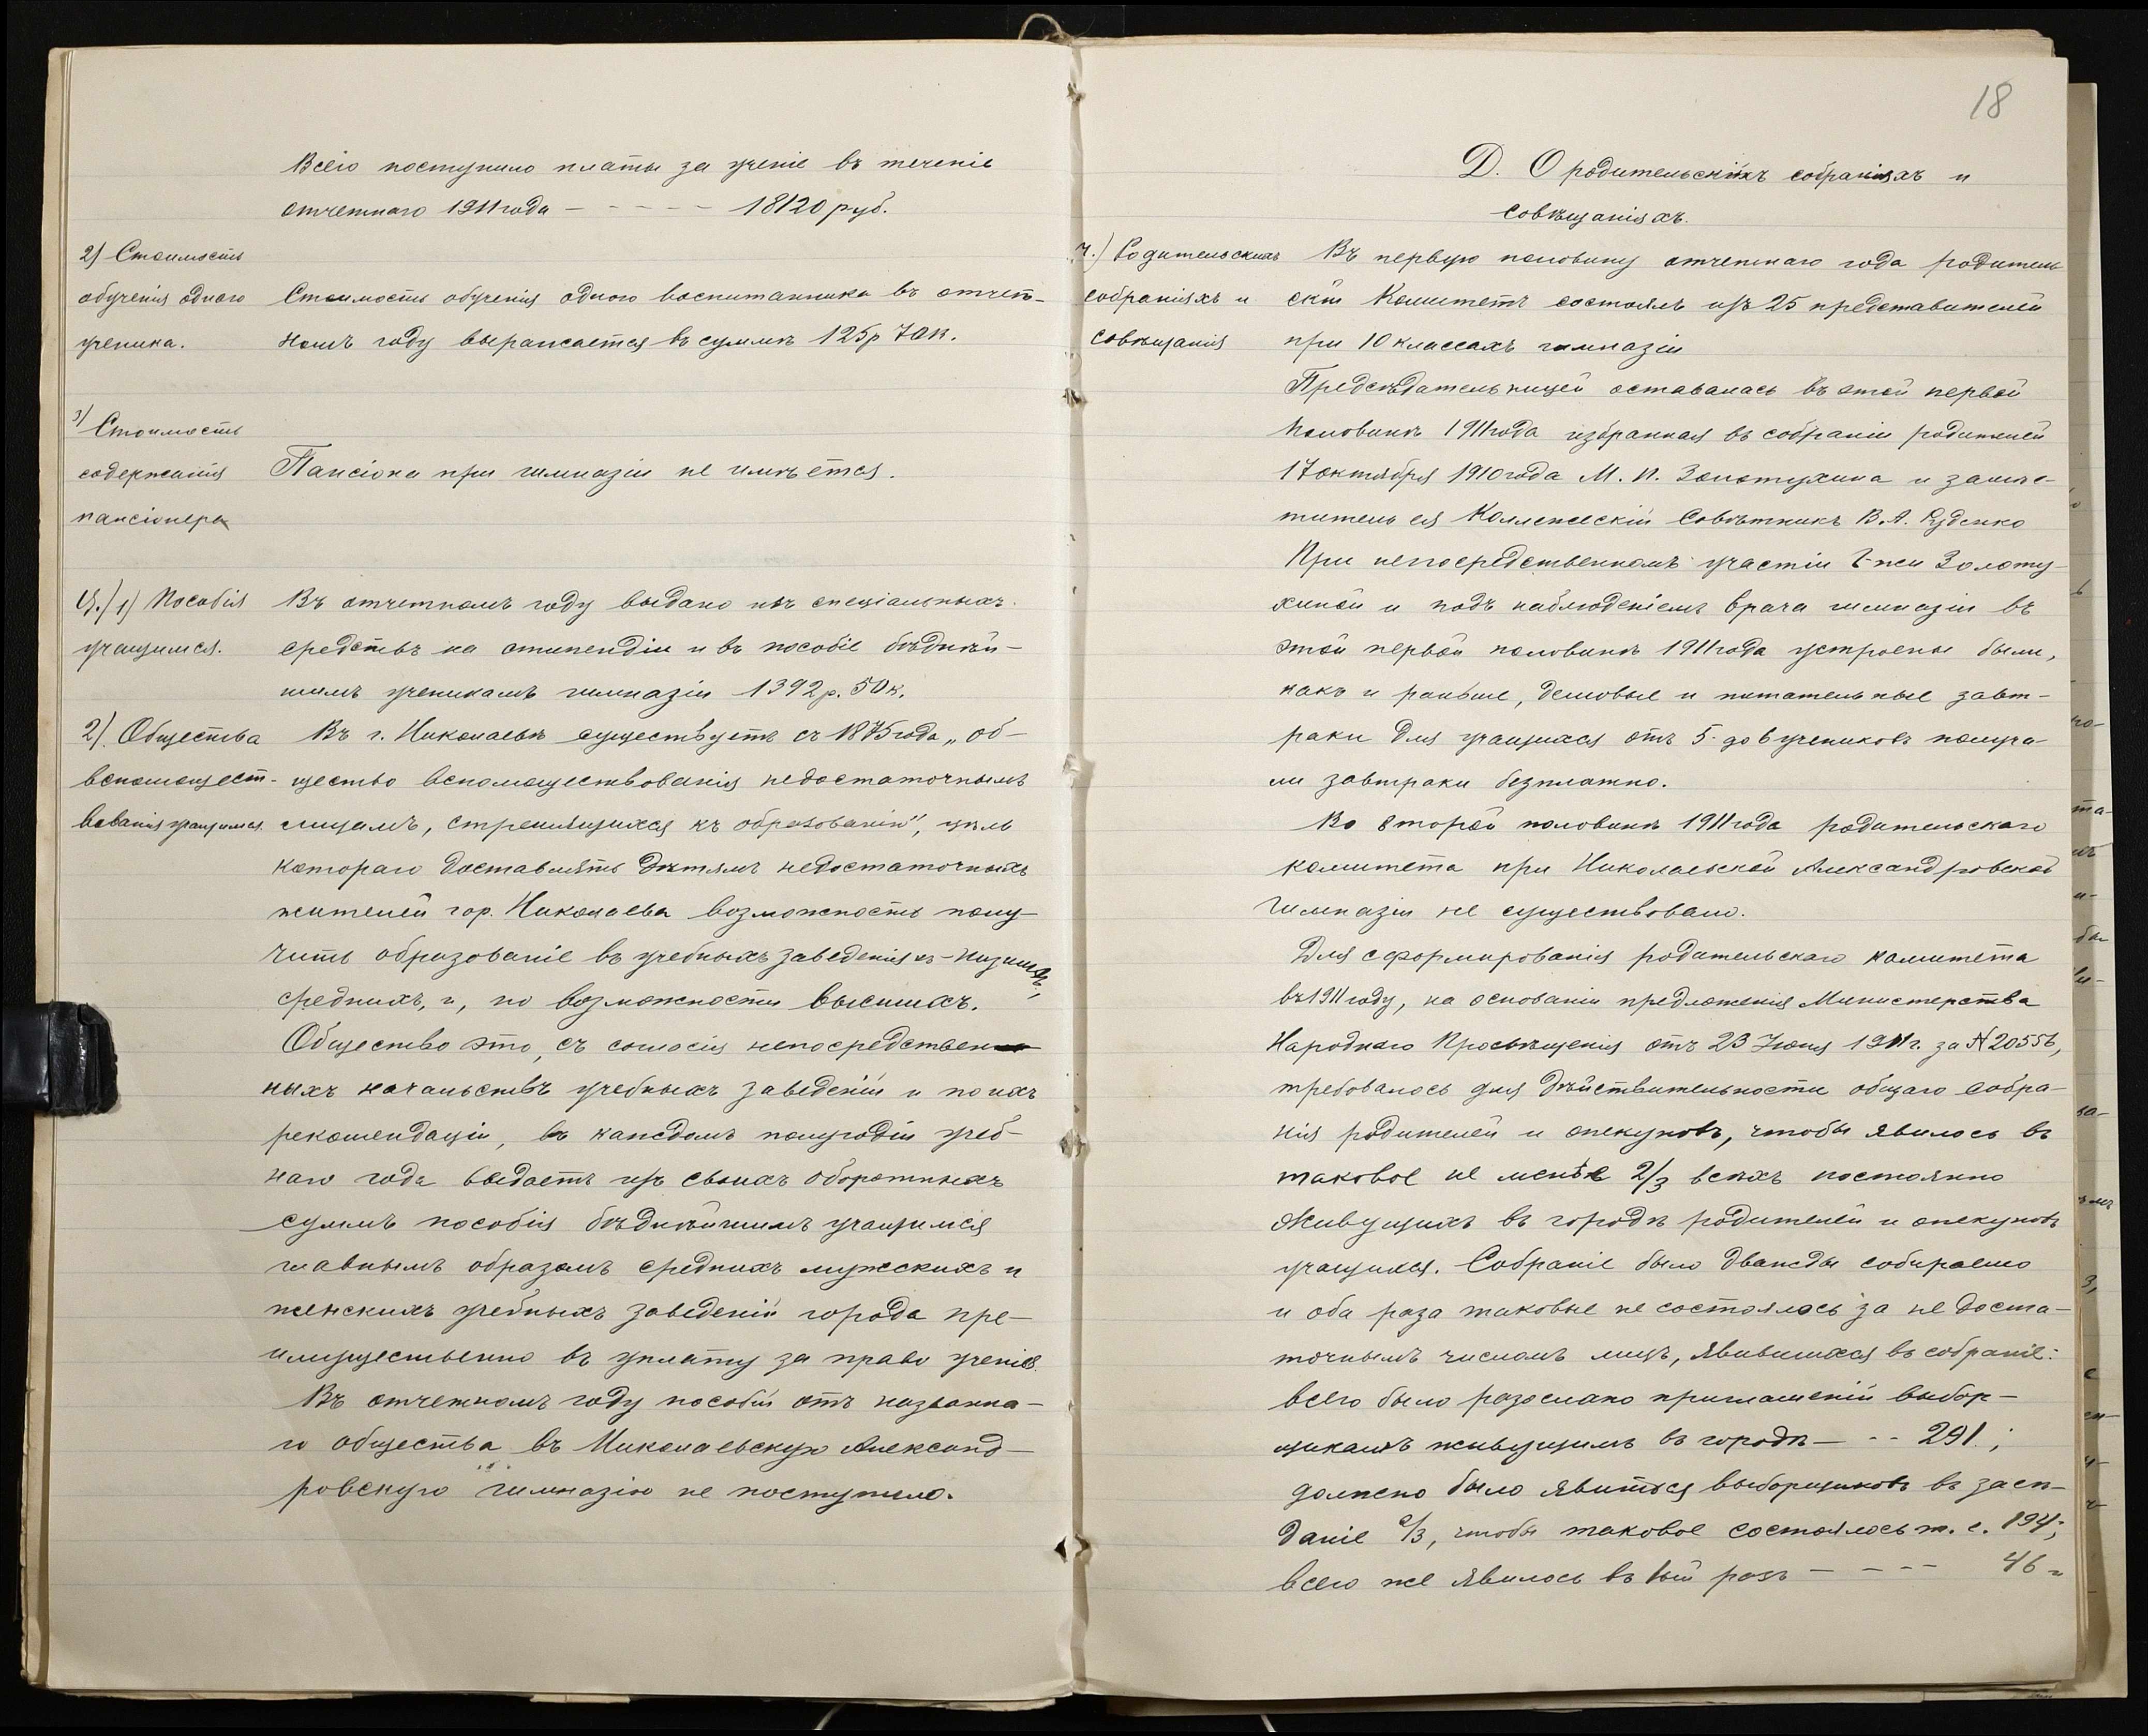 Всего поступило платы за ученіе въ теченіе
отчетнаго 1911 года - - - - - 18120 руб.
2) Стоимость
обученія одного
ученика.
Стоимость обученія одного воспитанника въ отчет-
номъ году выражается въ суммѣ 125 р. 70 к.
3) Стоимость
содержанія
пансіонера
Пансіона при гимназіи не имѣется.
1) Пособія
учащимся.
Въ отчетномъ году выдано изъ спеціальныхъ
средствъ на стипендіи и въ пособіе бѣднѣй-
шимъ ученикамъ гимназіи 1392 р. 50 к.
2) Общества
вспомощест-
вованія учащимся.
Въ г. Николаевѣ существуетъ съ 1875 года „об-
щество вспомоществованія недостаточнымъ
лицамъ, стремящихся къ образованію", цѣль
котораго доставлять дѣтямъ недостаточныхъ
жителей гор. Николаева возможность полу-
чить образованіе въ учебныхъ заведеніяхъ - низшихъ,
среднихъ, и, по возможности высшихъ.
Общество это, съ согласія непосредствен-
ныхъ начальствъ учебныхъ заведеній и по ихъ
рекомендаціи, въ каждомъ полугодіи учеб-
наго года выдаетъ изъ своихъ оборотныхъ
суммъ пособія бѣднѣйшимъ учащимся
главнымъ образомъ среднихъ мужскихъ и
женскихъ учебныхъ заведеній города пре-
имущественно въ уплату за право ученія.
Въ отчетномъ году пособій отъ названна-
го общества въ Николаевскую Александ-
ровскую гимназію не поступило.
18
Д. О родительскихъ собраніяхъ и
совѣщаніяхъ.
Родительскихъ
собраніяхъ и
совѣщанія
Въ первую половину отчетнаго года родитель
скій Комитетъ состоялъ изъ 25 представителей
при 10 классахъ гимназіи
Предсѣдательницей оставалась въ этой первой
половинѣ 1911 года избранная въ собраніи родителей
17 октября 1910 года М. И. Золотухина и замѣс-
титель ея Коллежскій Совѣтникъ В. А. Руденко
При непосредственномъ участіи Г-жи Золоту-
хиной и подъ наблюденіемъ врача гимназіи въ
этой первой половинѣ 1911 года устроены были,
какъ и раньше, дешовые и питательные завт-
раки для учащихся отъ 5 до 6 учениковъ получа-
ли завтраки безплатно.
Во второй половинѣ 1911 года родительскаго
комитета при Николаевской Александровской
Гимназіи не существовало.
Для сформированія родительскаго комитета
въ 1911 году, на основаніи предложенія Министерства
Народнаго Просвѣщенія отъ 23 Іюня 1911 г. за № 20556,
требовалось для дѣйствительности общаго собра-
нія родителей и опекуновъ, чтобы явилось въ
таковое не менѣе 2/3 всѣхъ постоянно
живущихъ въ городѣ родителей и опекуновъ
учащихся. Собраніе было дважды собираемо
и оба раза таковые не состоялось за не доста-
точнымъ числомъ лицъ, явившихся въ собраніе:
всего было разослано приглашеній выбор-
щикамъ живущимъ въ городѣ - - - 291;
должно было явиться выборщиковъ въ засѣ-
даніе 2/3, чтобы таковое состоялось т. е. 194;
всего же явилось въ 1ый разъ - - - - 46 "